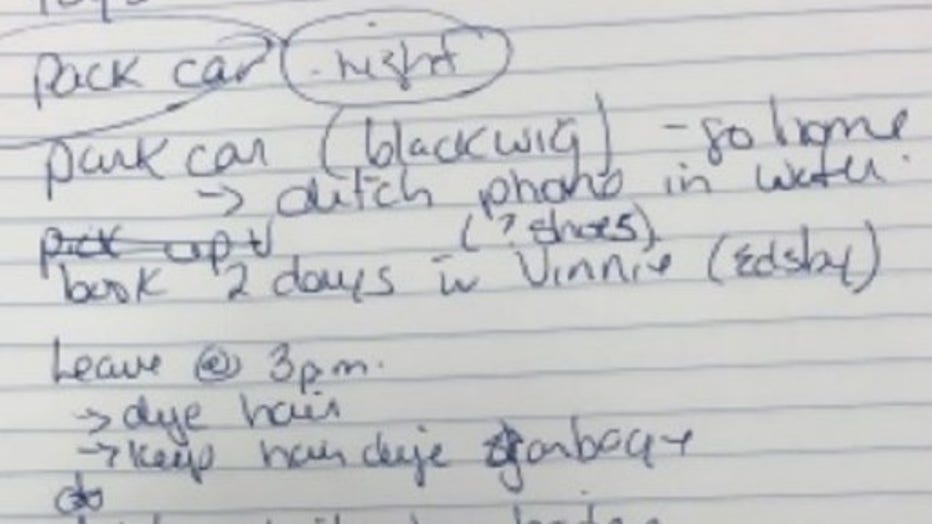 pack car night
park car (black wig) - go home
-> ditch phone in water.
pick up (? shoes)
book 2 days in Vinnie (Edsby)
Leave @ 3pm.
-> dye hair
-> keep hair dye garbage
do